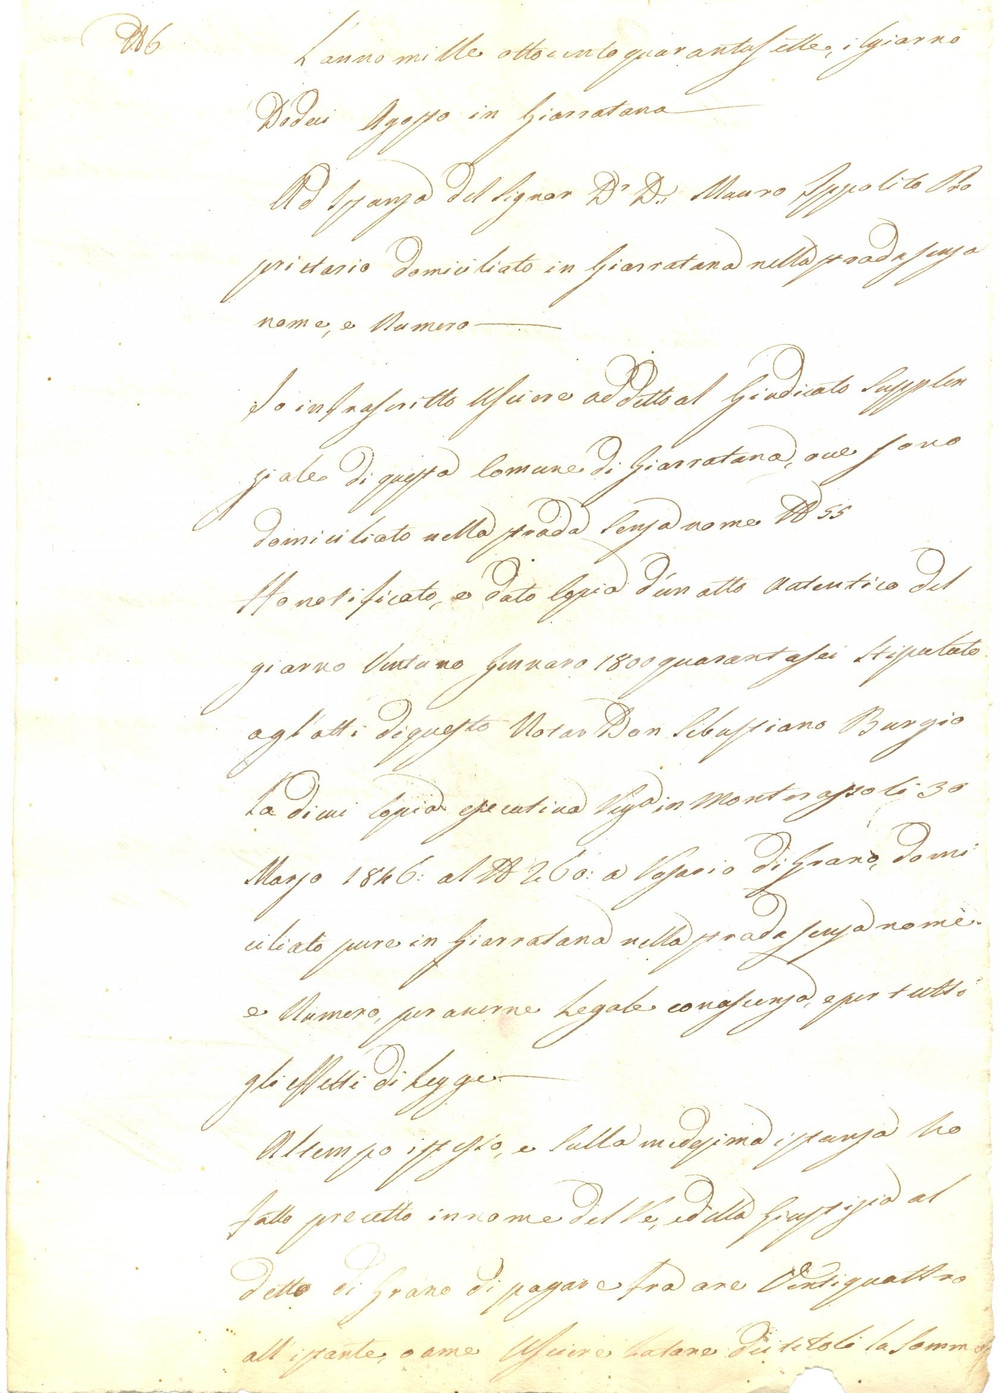 N 6
L'anno mille ottocento quarantasette, il giorno
Dodeci Agosto in Giarratana
Ad istanza del Signor Dr. D. Mauro Ippolito Pro
prietario domiciliato in Giarratana nella strada senza
nome, e Numero
Io infrascritto Usciere addetto al Giudicato Supplen
ziale di questa Comune di Giarratana, ove sono
domiciliato nella strada senza nome N 55
Ho notificato, e dato Copia d'un atto autentico del
giorno Ventuno Gennaro 1800quarantasei stipulato
agl'atti di questo Notar Don Sebastiano Burgio
La di cui Copia esecutiva in Monterosso li 30
Marzo 1846: al N 260: a Rosario di Grano, domi
ciliato pure in Giarratana nella strada senza nome
e Numero, per averne Legale conoscenza, e per tutti
gli effetti di Legge
Al tempo istesso, e sulla medesima istanza ho
fatto precetto in nome del Re, e della Giustizia al
detto di Grano di pagare fra ore Ventiquattro
all'istante, o a me Usciere Latore dei titoli la Somma